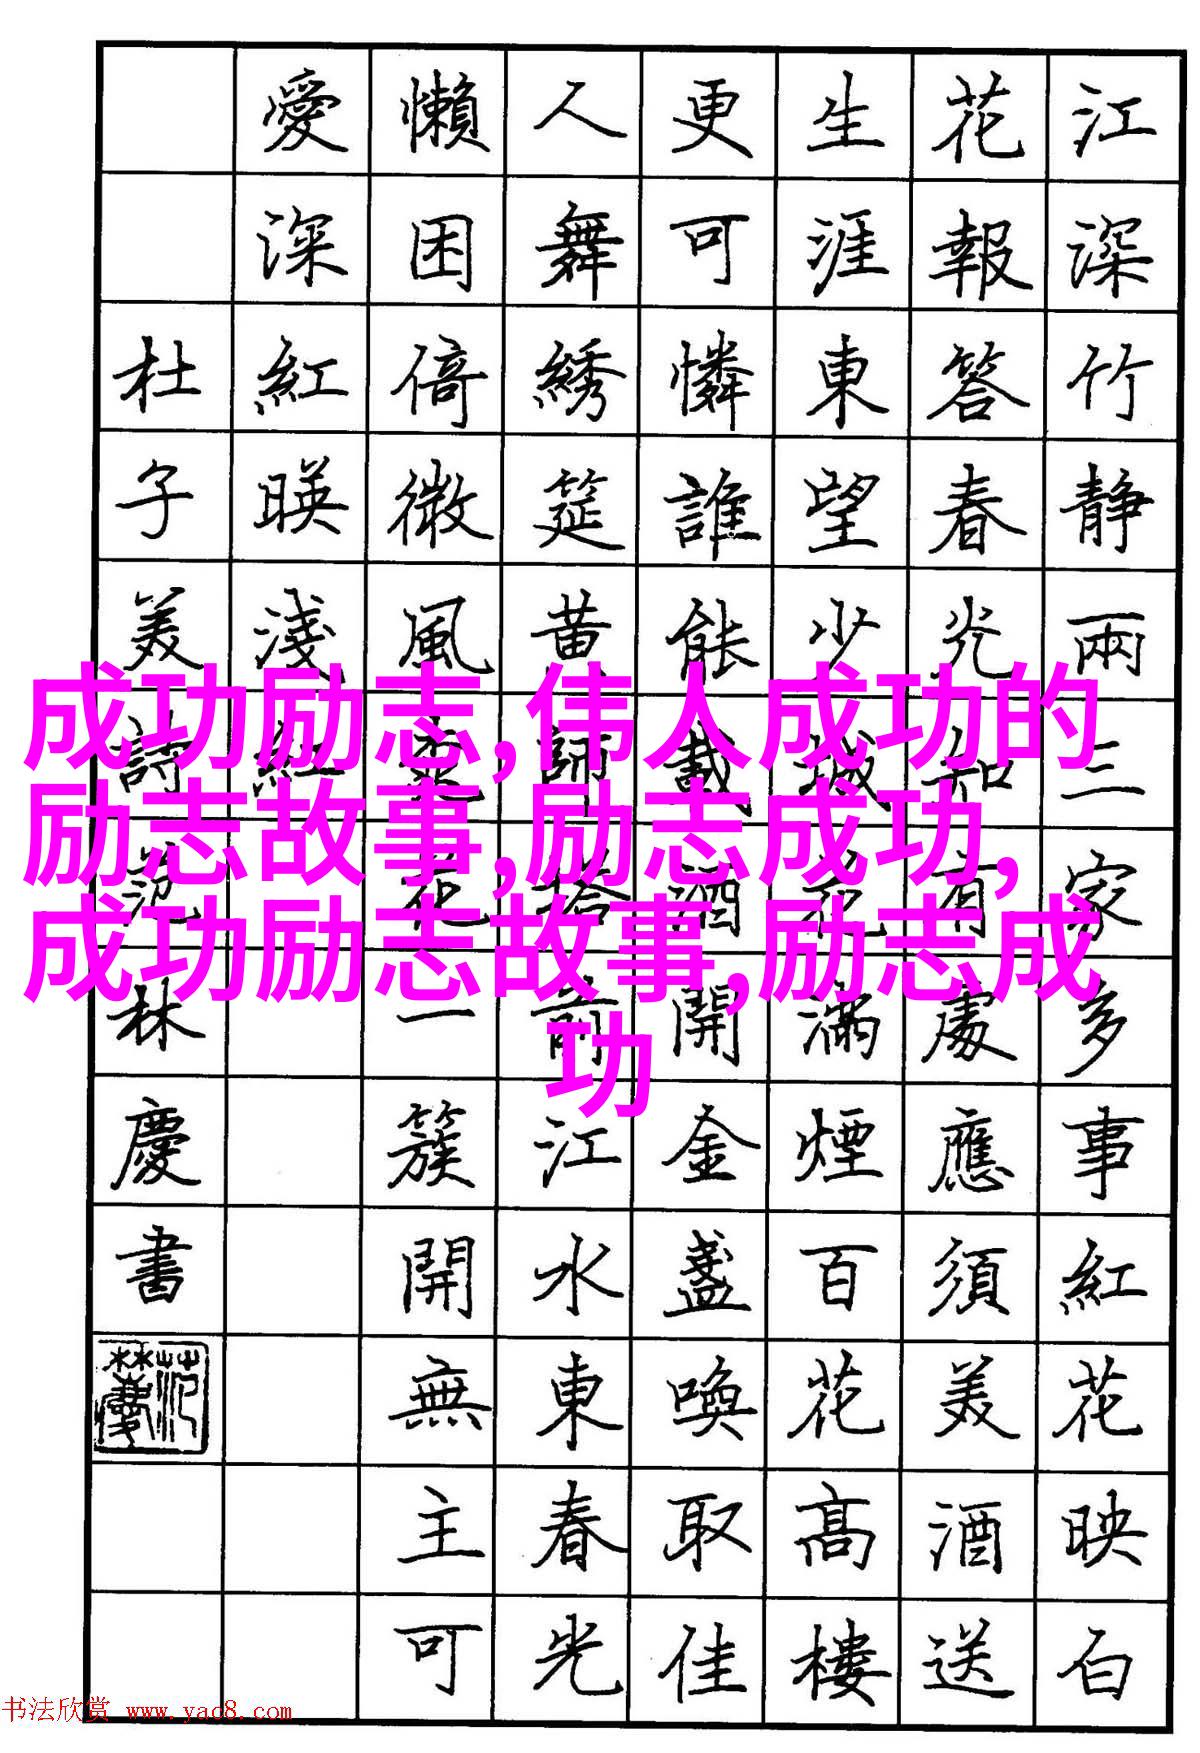 江深竹静兩三家多事紅花映白
花報答春光知有處應須美酒送
生涯東望少城花滿煙百花高樓
更可憐誰能載酒開金盞喚取佳
人舞綉筵黃師塔前江水東春光
懶困倚微風桃花一簇開無主可
愛深紅映淺紅
杜子美詩范林慶書
成功励志,伟人成功的
励志故事,励志成功,
成功励志故事,励志成
功
书法欣赏 www.yac8.com